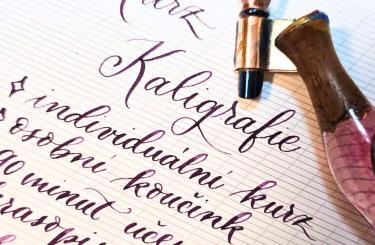 kurz
Kaligrafie
individuální kurz
osobní koučink
90 minut